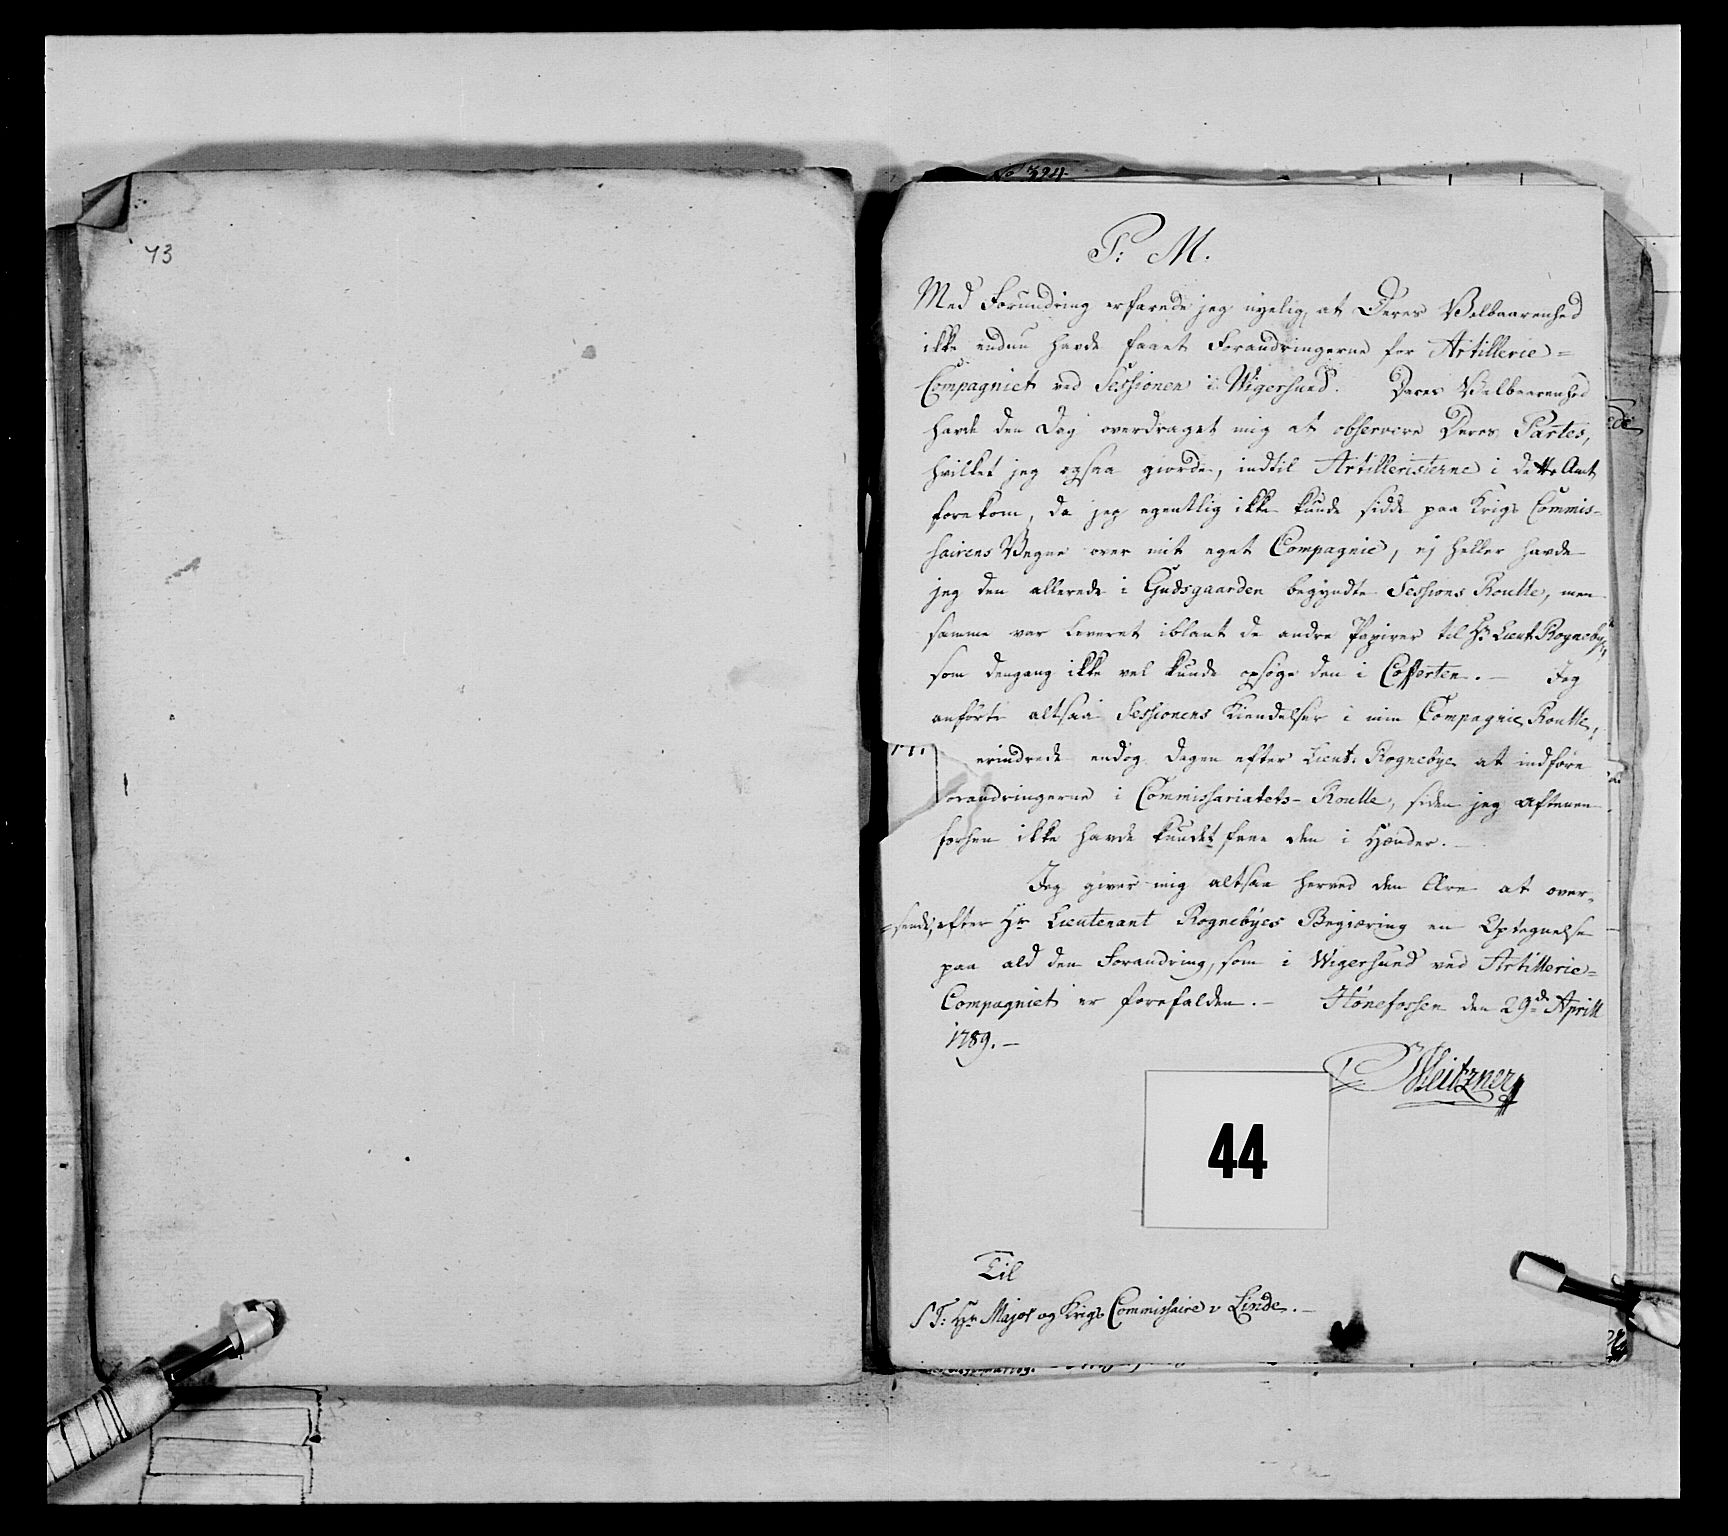 43
No 324
P: M.
Med Forundring erfarede jeg nyelig, at Deres Velbaarenhed
ikke endnu havde faaet Forandringerne for Artillerie=
Compagniet ved Sessionen i Wigersund. Deres Velbaarenhed
havde den Dag overdraget mig at observere Deres Partes,
hvilket jeg ogsaa giorde, indtil Artilleristerne i dette Amt
forekom, da jeg egentlig ikke kunde sidde paa Krigs Commis-
sairens Vegne over mit eget Compagnie, ej heller havde
jeg den allerede i Gudsgaarden begyndte Sessions Roulle, men
samme var leveret iblant de andre Papirer til Hr Lieut Rognebye,
som dengang ikke vel kunde opsøge den i Cofferten. - Jeg
anførte altsaa Sessionens Kiendelser i min Compagnie Roulle,
erindrede endog Dagen efter Lieut: Rognebye at indføre
Forandringerne i Commissariatets- Roulle, siden jeg Aftenen
forhen ikke havde kundet faae den i Hænder. -
Jeg giver mig altsaa herved den Ære at over-
=sende, efter Hr Lieutenant Rognebyes Begiæring en Optegnelse
paa ald den Forandring, som i Wigersund ved Artillerie=
Compagniet er forefalden. - Hónefossen den 29de Aprill
1789. -
Meitzner
44
Til
S T: Hr Major og Krigs Commissaire v Linde. -